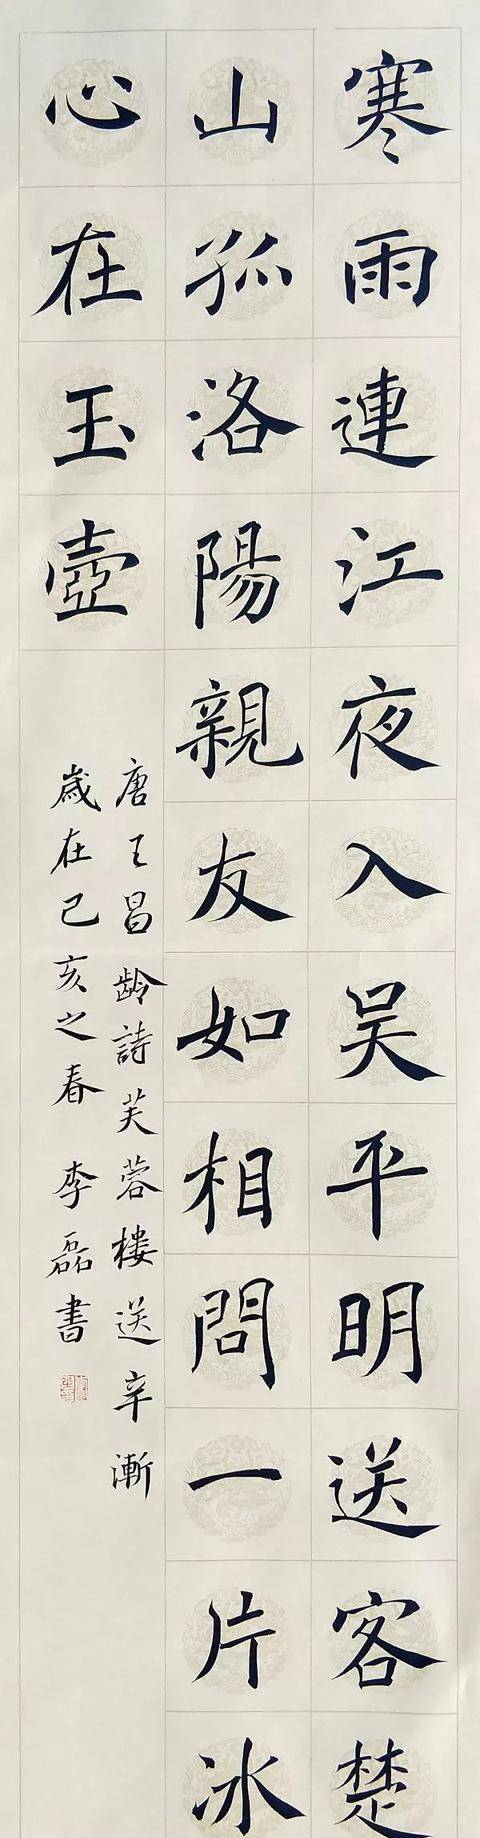 寒雨連江夜入吴平明送客楚
山孤洛陽親友如相問一片冰
心在玉壺
唐王昌齡詩芙蓉樓送辛漸
歲在己亥之春 李磊書